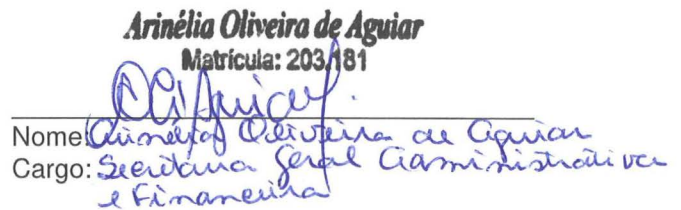 Arinélia Oliveira de Aguiar
Matrícula: 203.181
Nome: Arinélia Oliveira de Aguiar
Cargo: Secretária Geral Administrativa
e Financeira